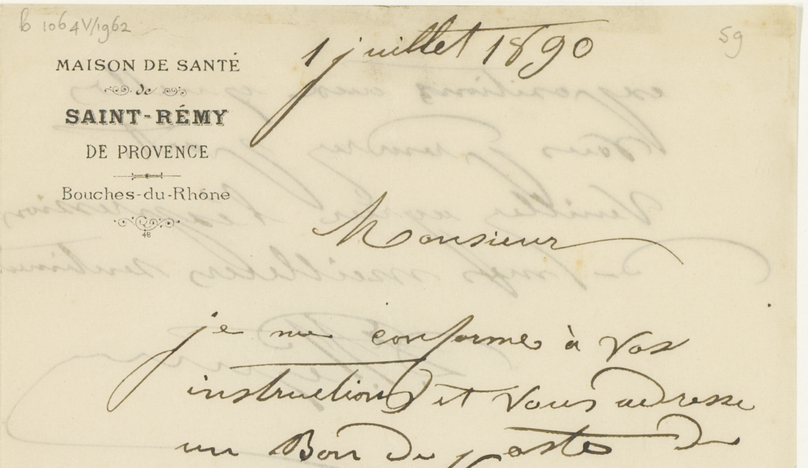 b 1064 V/1962
59
1 juillet 1890
MAISON DE SANTÉ
de
SAINT-RÉMY
DE PROVENCE
Bouches-du-Rhône
46
Monsieur
je me conforme à vos
instructions et vous adresse
un Bon de poste de